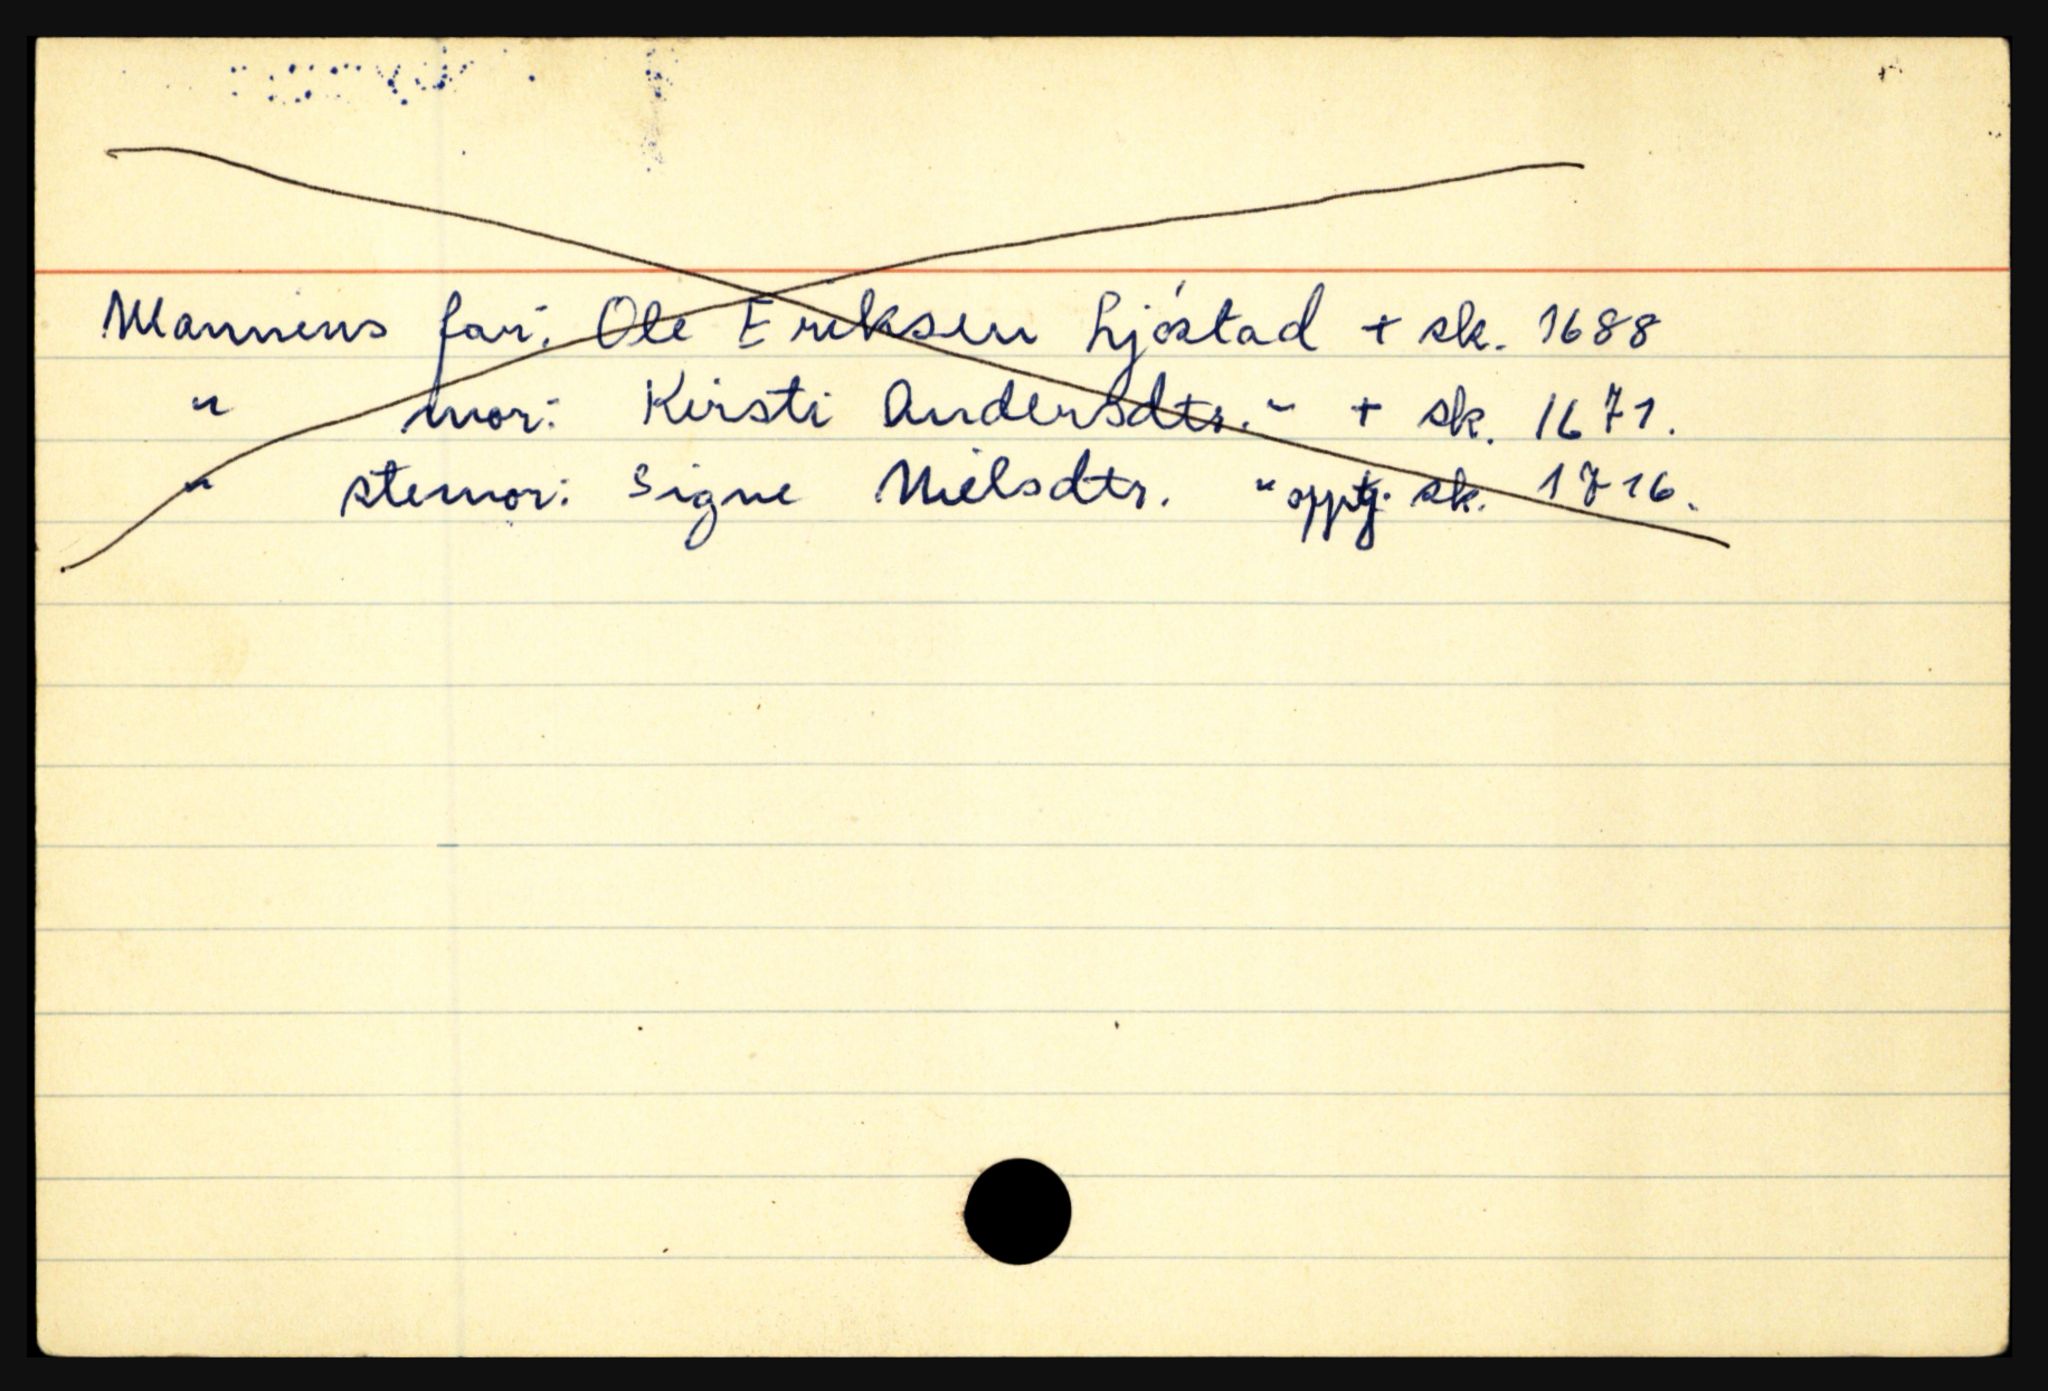 Mannens far: Ole Eriksen Ljøstad + sk. 1688
" mor: Kirsti Andersdtr. " + sk. 1671.
" stemor: Signe Nielsdtr. " sk. 1716.